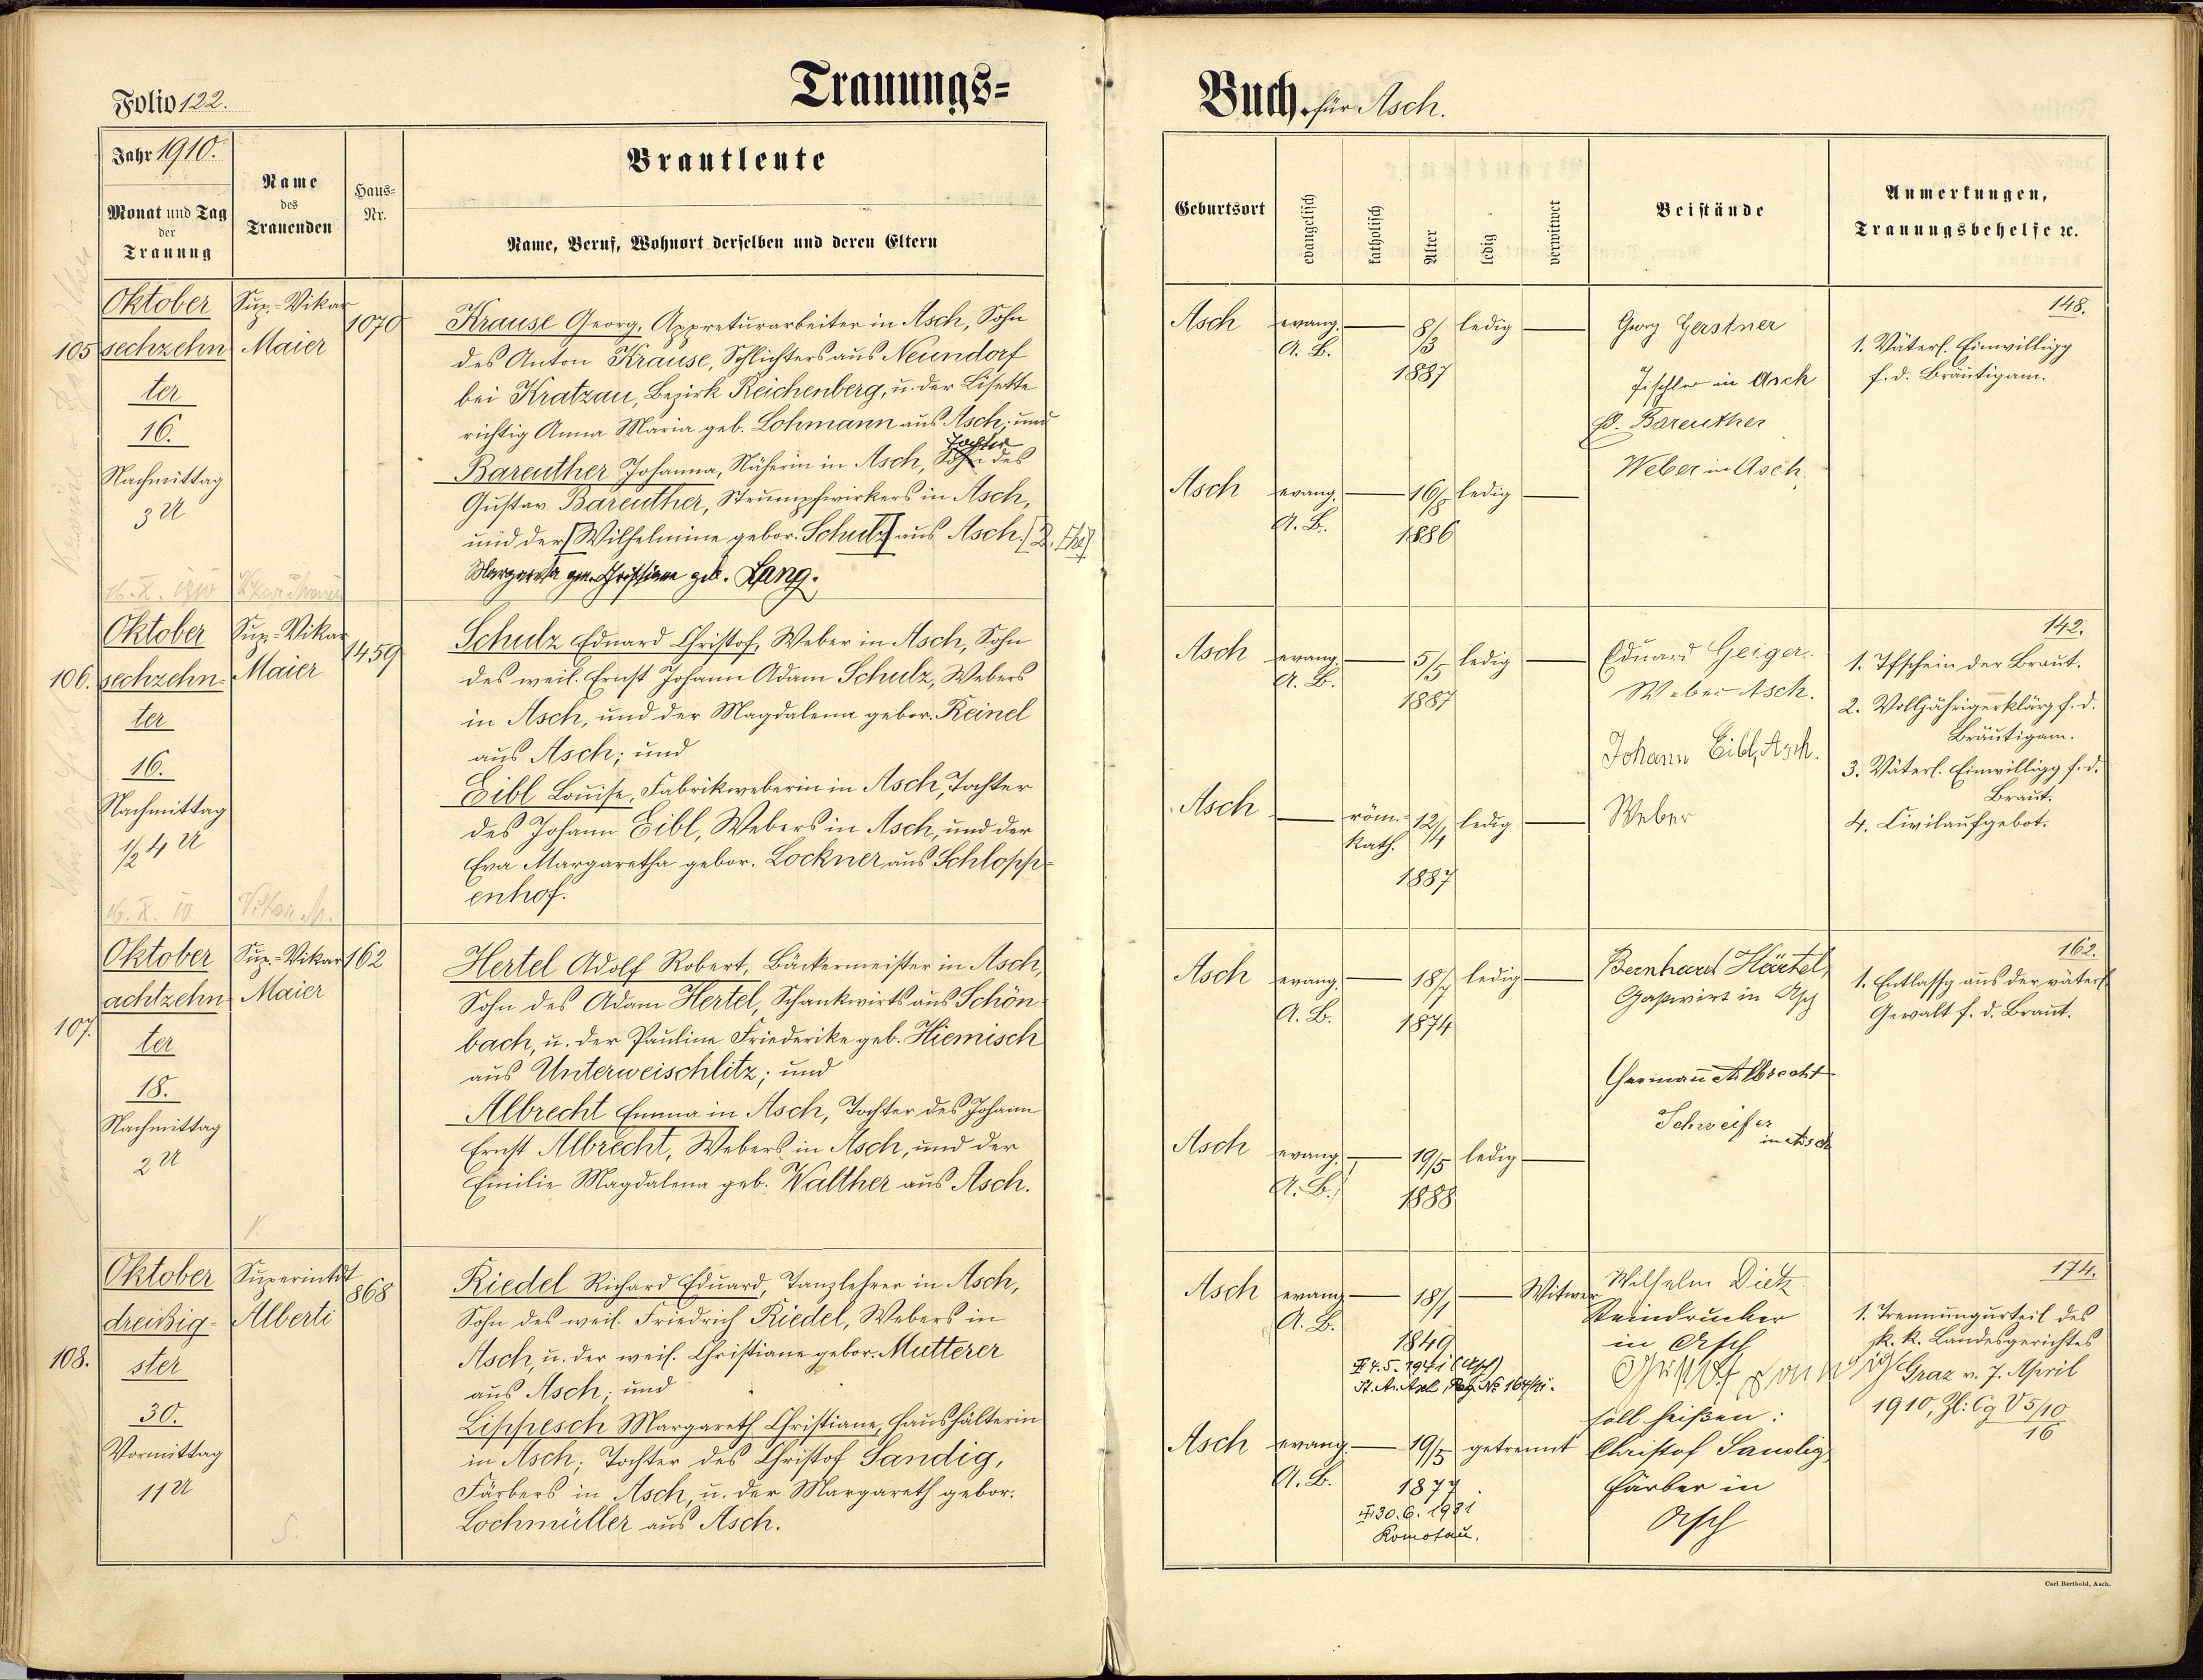 Folio 122.
Trauungs=
Buch. für Asch.
Jahr 1910.
Monat und Tag
der
Trauung
Name
des
Trauenden
Haus=
Nr.
Brautleute
Name, Beruf, Wohnort derselben und deren Eltern
Geburtsort
evangelisch
katholisch
Alter
ledig
verwitwet
Beistände
Anmerkungen,
Trauungsbehelfe ꝛc.
105
Oktober
sechzehn
ter
16.
Nachmittag
3 U
Sup.=Vikar
Maier
1070
Krause Georg, Appreturarbeiter in Asch, Sohn
des Anton Krause, Schlichters aus Neundorf
bei Kratzau, Bezirk Reichenberg, u. der Lisette
richtig Anna Maria geb. Lohmann aus Asch; und
Tochter
Bareuther Johanna, Näherin in Asch, Sohn des
Gustav Bareuther, Strumpfwirkers in Asch,
und der [Wilhelmine gebor. Schulz] aus Asch. [2. Ehe]
Margareta gen. Christiane geb. Lang.
Asch
evang.
A. B.
8/3
1887
ledig
Asch
evang.
A. B.
16/8
1886
ledig
Georg Gerstner
Tischler in Asch
Bareuther
Weber in Asch.
148.
1. Väterl. Einwilligg
f. d. Bräutigam.
16. X. 1910
106.
Oktober
sechzehn=
ter
16.
Nachmittag
1/2 4 U
Sup.=Vikar
Maier
1459
Schulz Eduard Christof, Weber in Asch, Sohn
des weil. Ernst Johann Adam Schulz, Webers
in Asch, und der Magdalena gebor. Reinel
aus Asch; und
Eibl Louise, Fabrikweberin in Asch, Tochter
des Johann Eibl, Webers in Asch, und der
Eva Margaretha gebor. Lockner aus Schlopp=
enhof.
Asch
evang.
A. B.
5/5
1887
ledig
Asch
röm.=
kath.
12/4
1887
ledig
Eduard Geiger.
Weber Asch.
Johann Eibl, Asch.
Weber
142.
1. Tfschein der Braut.
2. Volljährigerklärg f. d.
Bräutigam.
3. Väterl. Einwilligg f. d.
Braut.
4. Civilaufgebot.
16. X. 10.
Vikar M.
107.
Oktober
achtzehn
ter
18.
Nachmittag
2 U
Sup.=Vikar
Maier
162
Hertel Adolf Robert, Bäckermeister in Asch,
Sohn des Adam Hertel, Schankwirts aus Schön=
bach, u. der Pauline Friederike geb. Hiemisch
aus Unterweischlitz; und
Albrecht Emma in Asch, Tochter des Johann
Ernst Albrecht, Webers in Asch, und der
Emilie Magdalena geb. Walther aus Asch.
Asch
evang.
A. B.
18/7
1874
ledig
Asch
evang.
A. B.
19/5
1888
ledig
Bernhard Härtel,
Gastwirt in Asch
Hermann Albrecht
Schweifer
in Asch
162.
1. Entlassg aus der väterl.
Gewalt f. d. Braut.
108.
Oktober
dreißig=
ster
30.
Vormittag
11 U
Superintdt
Alberti
868
Riedel Richard Eduard, Tanzlehrer in Asch,
Sohn des weil. Friedrich Riedel, Webers in
Asch, u. der weil. Christiane gebor. Mutterer
aus Asch; und
Lippesch Margareth Christiane, Haushälterin
in Asch; Tochter des Christof Sandig,
Färbers in Asch, u. der Margareth gebor.
Lochmüller aus Asch.
Asch
evang.
A. B.
18/1
1849
Witwer
4.5.1941 (Asch)
St. A. Asch, Reg. No 164/41.
Asch
evang.
A. B.
19/5
1877
getrennt
30.6.1931
Komotau.
Wilhelm Dietz
Steindrucker
in Asch
soll heißen:
Christof Sandig,
Färber in
Asch
174.
1. Trennungurteil des
k. k. Landesgerichtes
Graz v. 7. April
1910, Zl: Cg V 5/10
16
Carl Berthold, Asch.